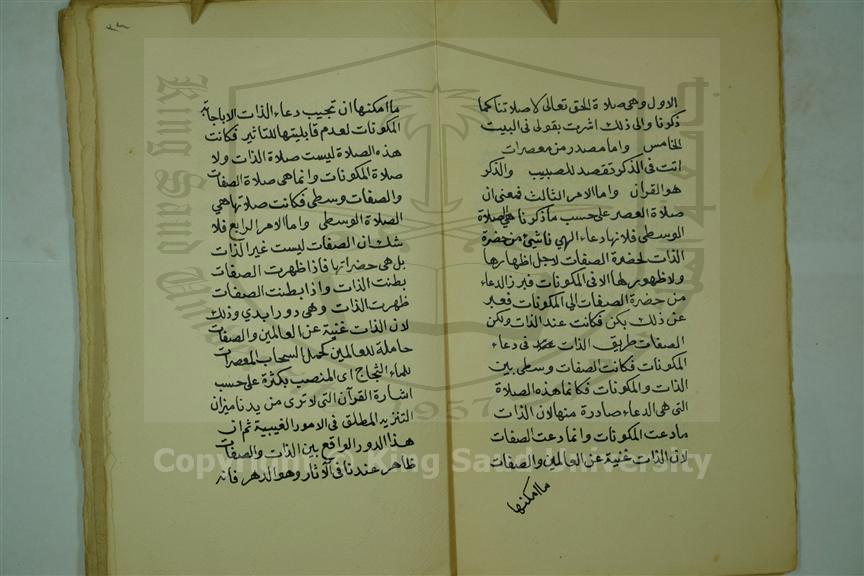 الاول وهي صلاة الحق تعالى لا صلاتنا كما
ذكرنا والى ذلك اشرت بقولى فى البيت
الخامس واما مصدر من معصرات
اتت فى الذكر تقصد للصبيب والذكر
هو القران واما الامر الثالث فمعنى ان
صلاة العصر على حسب ما ذكرنا هى الصلاة
الوسطى فلانها دعاء الهي ناشئ من حضرة
الذات لحضرة الصفات لاجل اظهارها
ولا ظهور لها الا فى المكونات فبرز الدعاء
من حضرة الصفات الى المكونات فعبر
عن ذلك بكن فكانت عند الذات ولكن
الصفات طريق الذات فى دعاء
المكونات فكانت الصفات وسطى بين
الذات والمكونات فكانما هذه الصلاة
التى هى الدعاء صادرة منها لان الذات
ما دعت المكونات وانما دعت الصفات
لان الذات غنية عن العالمين والصفات
ما امكنها
٢٦
ما امكنها ان تجيب دعاء الذات الا باجابة
المكونات لعدم قابليتها للتاثير فكانت
هذه الصلاة ليست صلاة الذات ولا
صلاة المكونات وانما هى صلاة الصفات
والصفات وسطى فكانت صلاتها هى
الصلاة الوسطى واما الامر الرابع فلا
شك ان الصفات ليست غير الذات
بل هى حضراتها فاذا ظهرت الصفات
بطنت الذات واذا بطنت الصفات
ظهرت الذات وهى دور ابدي وذلك
لان الذات غنية عن العالمين والصفات
حاملة للعالمين كحمل السحاب المعصرات
للماء الثجاج اى المنصب بكثرة على حسب
اشارة القرآن التى لا ترى من يدنا ميزان
التنزيه المطلق فى الامور الغيبية ثم ان
هذا الدور الواقع بين الذات والصفات
ظاهر عندنا فى الآثار وهو الدهر فانه
King Saud University
1957
Copyright © King Saud University